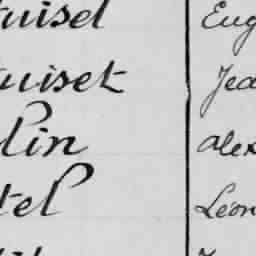 uisel Eug
uiset Jea
lin Alex
tel Léon